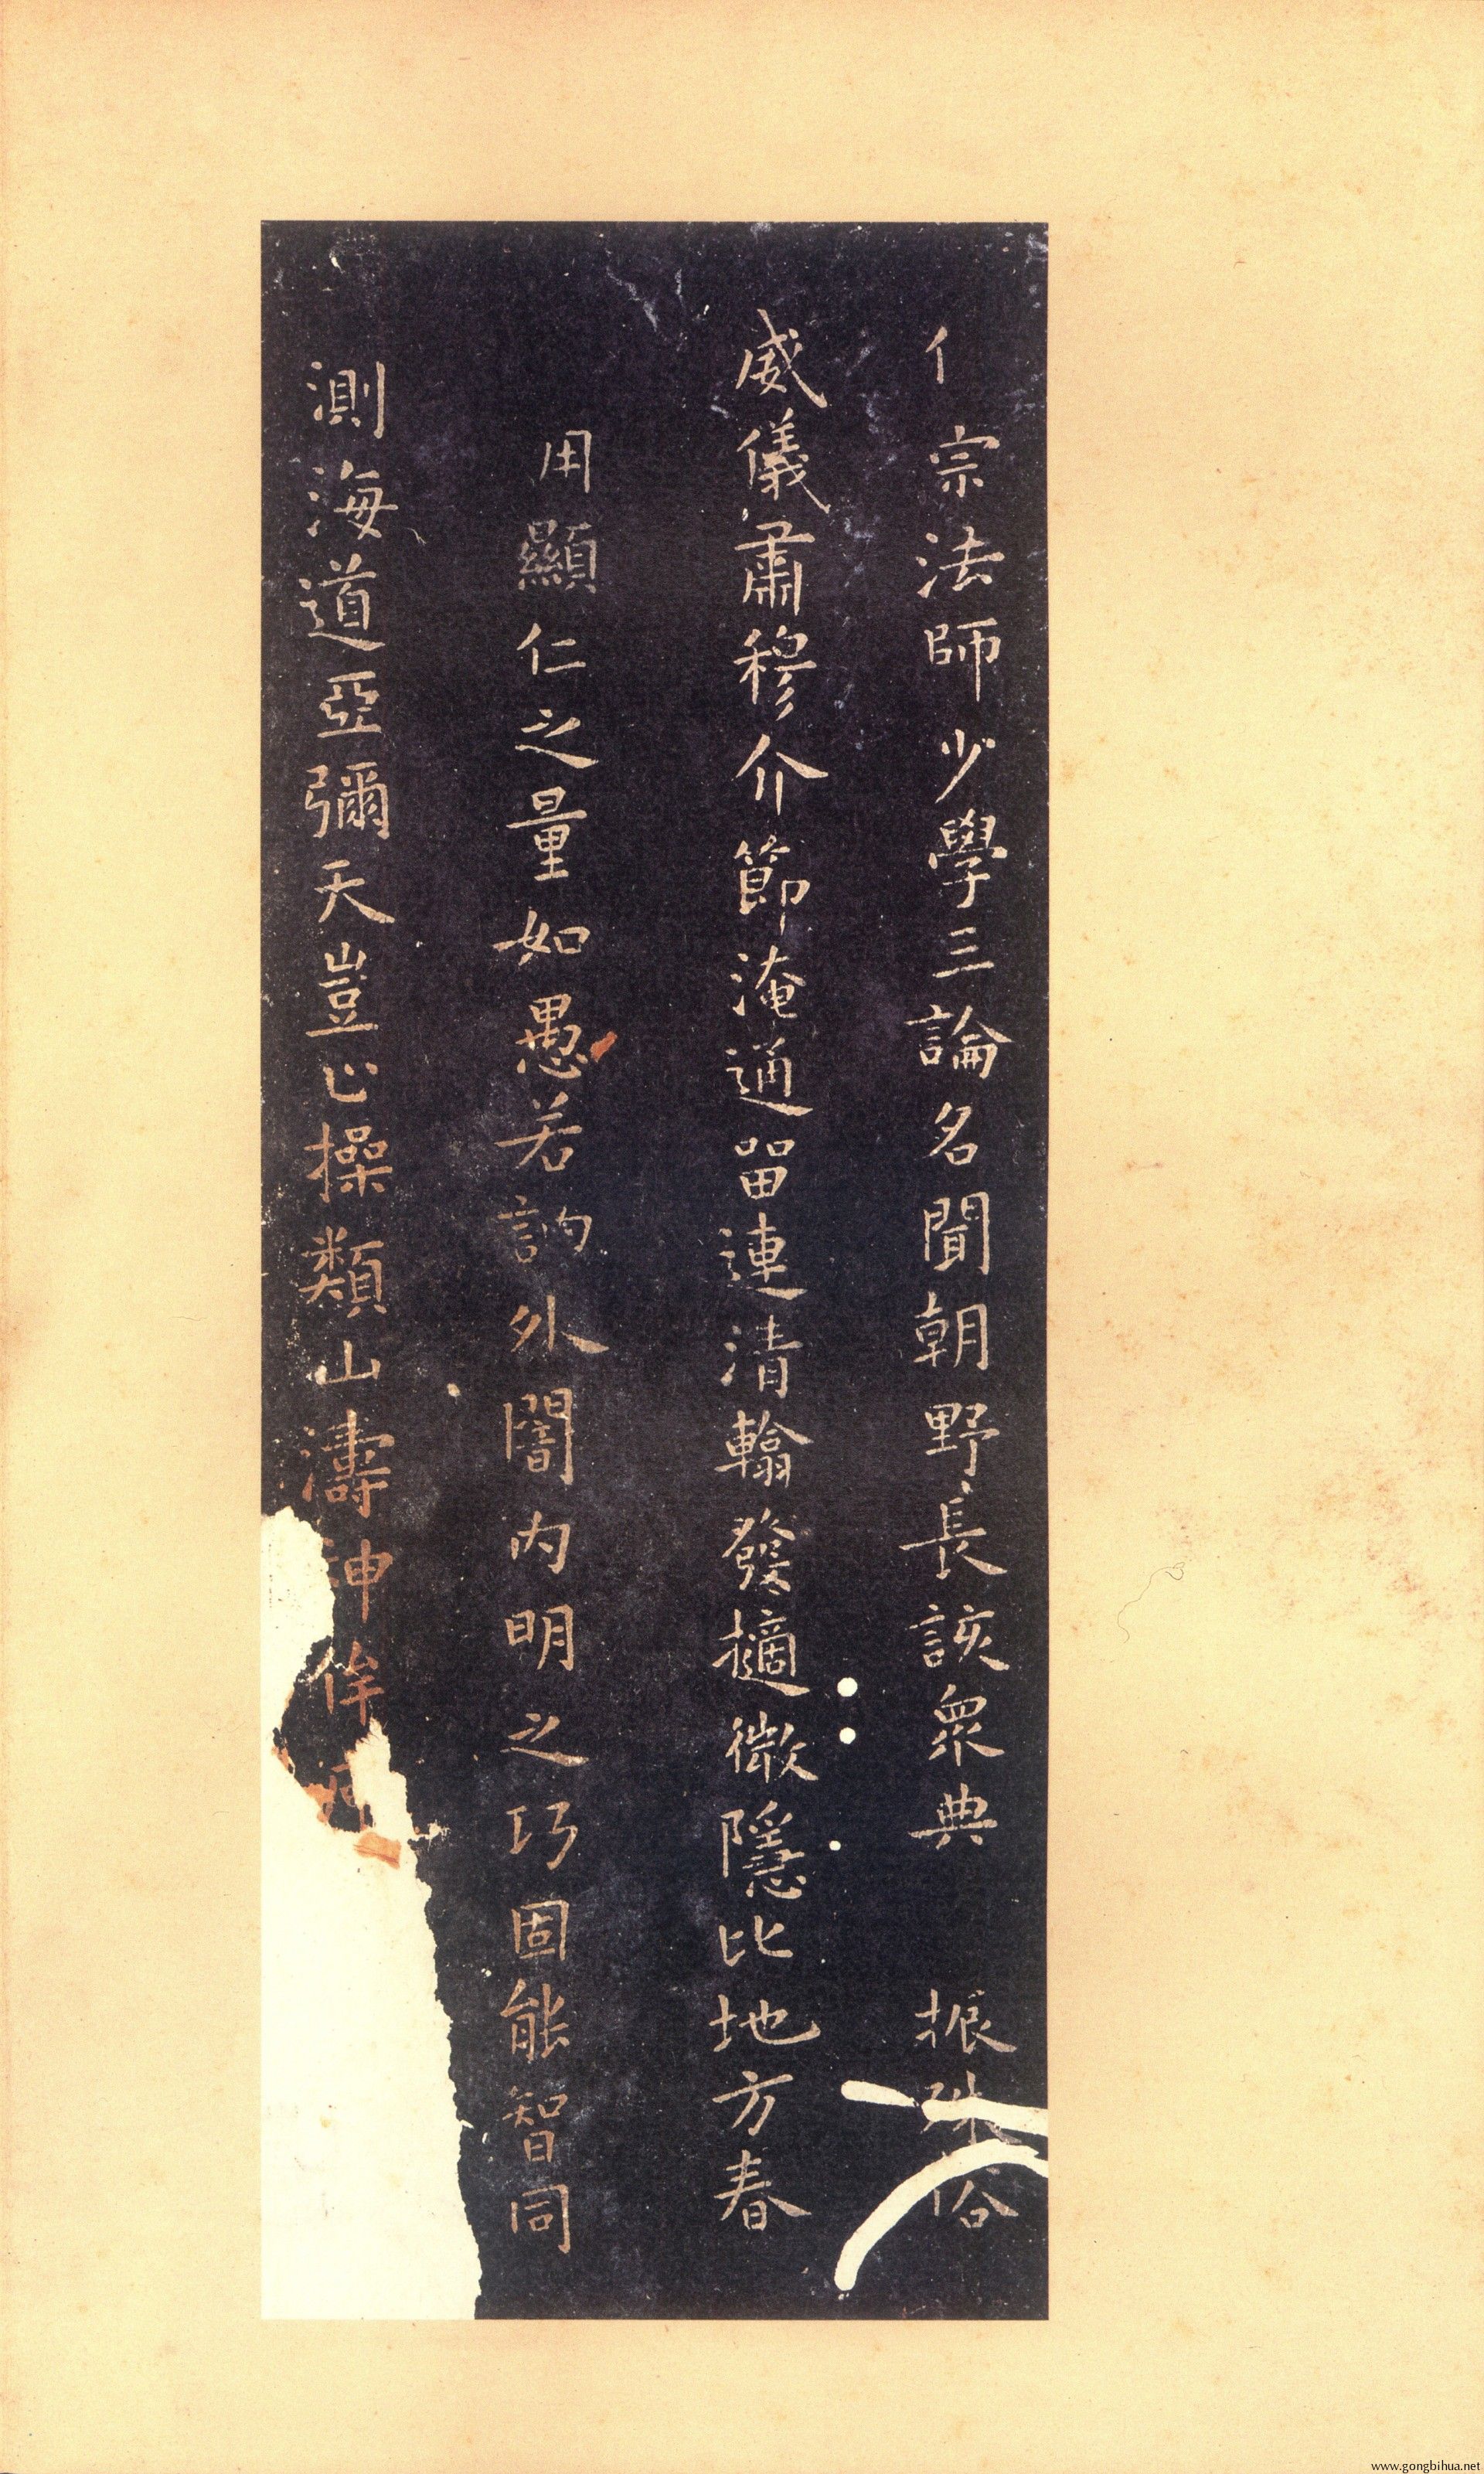 亻宗法師少學三論名聞朝野長該眾典 振殊俗
威儀肅穆介節淹通留連清翰發擿微隱比地方春
用顯仁之量如愚若訥外闇內明之巧固能智同
測海道亞彌天豈止操類山濤神侔
www.gongbihua.net